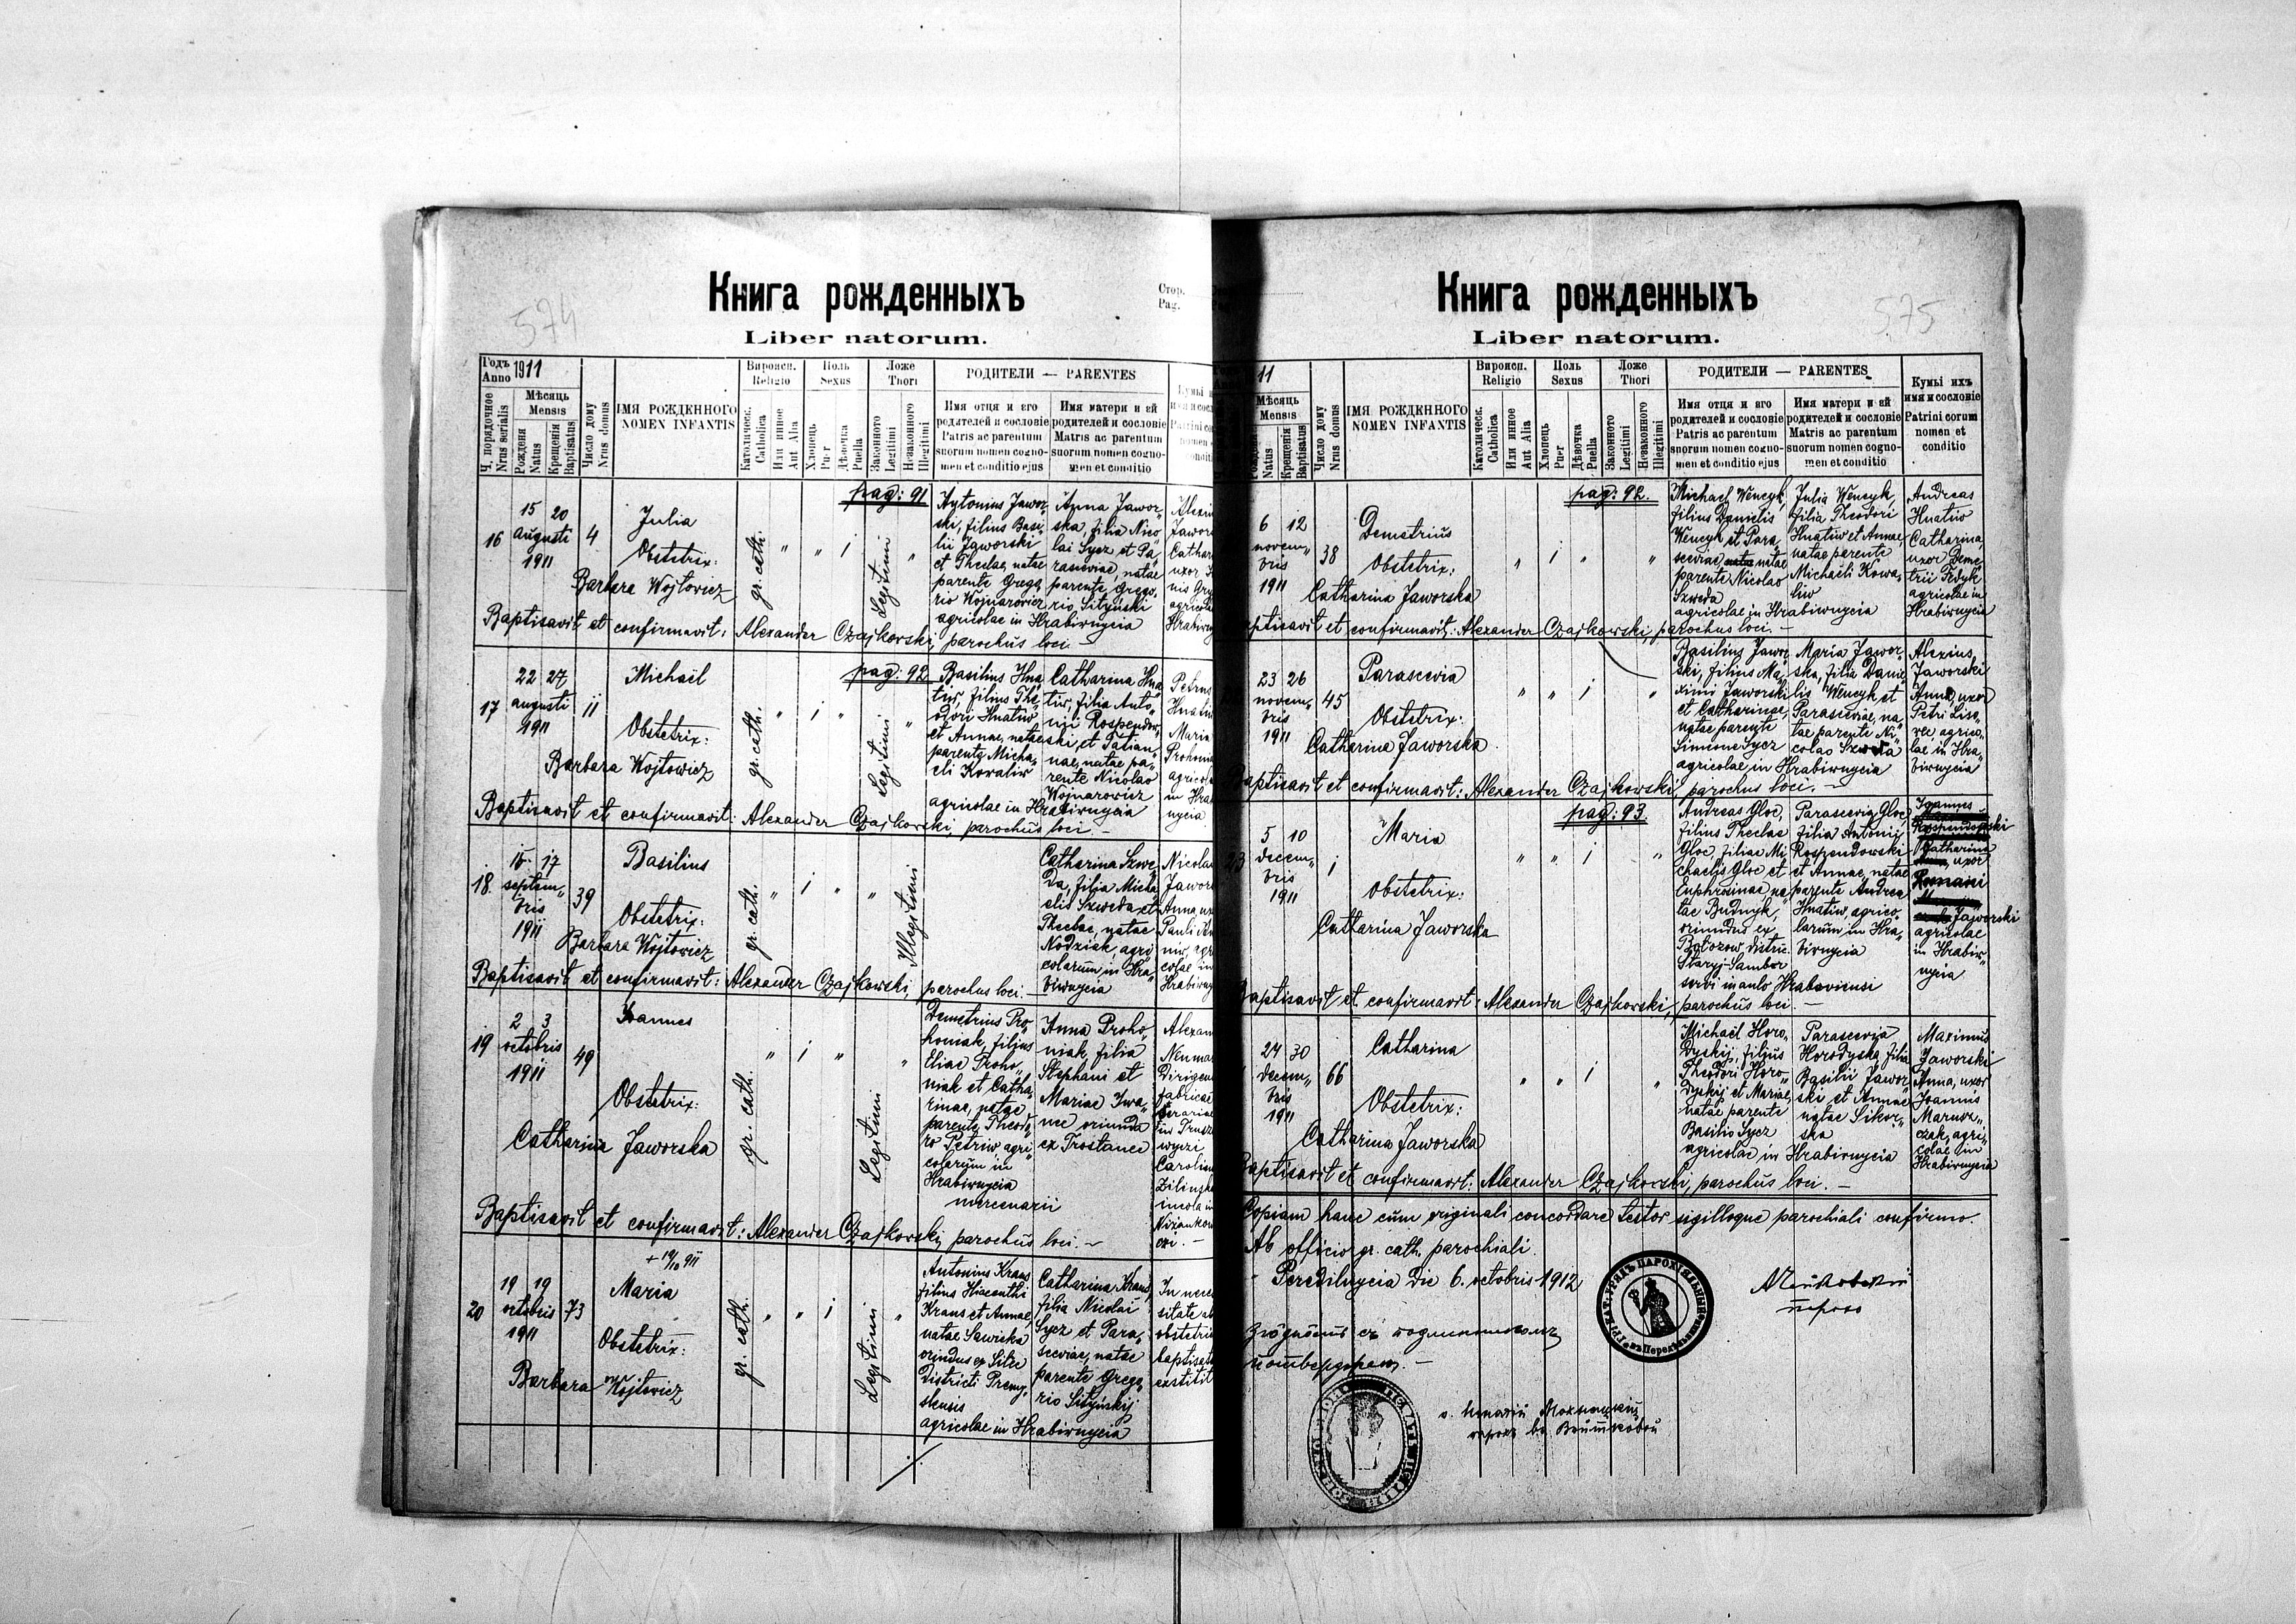 574
Книга рожденныхъ
Стор.
Pag.
Liber natorum.
Годъ
Anno 1911
Мѣсяць
Mensis
Ч. порядочное
Nrus serialis
Рожденя
Natus
Крещенія
Baptisatus
Число дому
Nrus domus
ІМЯ РОЖДЕННОГО
NOMEN INFANTIS
Вироисп.
Religio
Католическ.
Catholica
Или инное
Aut Alia
Поль
Sexus
Хлопець
Puer
Дѣвочка
Puella
Ложе
Thori
Законного
Legitimi
Незаконного
Illegitimi
РОДИТЕЛИ — PARENTES
Имя отця и его
родителей и сословіе
Patris ac parentum
suorum nomen cogno-
men et conditio ejus
Имя матери и ей
родителей и сословіе
Matris ac parentum
suorum nomen cogno-
men et conditio
pag: 91
16
15 20
Augusti
1911
4
Julia
Obstetrix:
Barbara Wojtowicz
gr. cath.
" " 1
Legitimi
"
Antonius Jawor-
ski, filius Basi-
lii Jaworski
et Theclae, natae
parente Grego,
rio Wojnarowicz
Anna Jawor-
ska, filia Nico
lai Sycz et Pa
rasceviae, natae
parente Grego,
rio Sityński
agricolae in Hrabiwnycia
Baptisavit et confirmavit: Alexander Czajkowski, parochus loci. —
pag: 92
17
22 27
augusti
1911
11
Michaël
Obstetrix:
Barbara Wojtowicz
gr. cath.
" 1 "
Legitimi
"
Basilius Hna
tiw, filius The,
odori Hnatiw
et Annae, natae
parente Micha,
eli Kowaliw
Catharina Hna
tiw, filia Anto"
nii Rospendow,
ski, et Tatian,
nae, natae pa"
rente Nicolao
Wojnarowicz
agricolae in Hrabiwnycia
Petrus
Maria
in Hra
nycia
Baptisavit et confirmavit: Alexander Czajkowski, parochus loci. —
18
15 17
septem"
bris
1911
39
Basilius
Obstetrix:
Barbara Wojtowicz
gr. cath.
" 1 " "
Illegitimi
Catharina Szwe,
da, filia Micha
elis Szweda, et
Theclae, natae
Nodziak, agri
colarum in Hra,
biwnycia
Baptisavit et confirmavit: Alexander Czajkowski, parochus loci. —
19
2 3
octobris
1911
49
Joannes
Obstetrix:
Catharina Jaworska
gr. cath.
" 1 "
Legitimi
"
Demetrius Pro,
honiak, filius
Eliae Proho,
niak et Catha,
rinae, natae
parente Theodo
ro Petriw, agri
colarum in
Hrabiwnycia
mercenarii
Anna Proho,
niak, filia
Stephani et
Mariae Iwa"
nec oriunda
ex Trostanec
Baptisavit et confirmavit: Alexander Czajkowski, parochus loci. —
+ 19/10 911
20
19 19
octobris
1911
73
Maria
Obstetrix:
Barbara Wojtowicz
gr. cath.
" " 1
Legitimi
"
Antonius Kraus
filius Hiacinthi
Kraus et Annae,
natae Sawicka
oriundus ex Sitec
Districti Premy,
sliensis
Catharina Kraus,
filia Nicolai
Sycz et Para,
sceviae, natae
parente Grego
rio Sityńskij
agricolae in Hrabiwnycia
575
Книга рожденныхъ
Liber natorum.
11
Мѣсяць
Mensis
Natus
Крещенія
Baptisatus
Число дому
Nrus domus
ІМЯ РОЖДЕННОГО
NOMEN INFANTIS
Вироисп.
Religio
Католическ.
Catholica
Или инное
Aut Alia
Поль
Sexus
Хлопець
Puer
Дѣвочка
Puella
Ложе
Thori
Законного
Legitimi
Незаконного
Illegitimi
РОДИТЕЛИ — PARENTES
Имя отця и его
родителей и сословіе
Patris ac parentum
suorum nomen cogno-
men et conditio ejus
Имя матери и ей
родителей и сословіе
Matris ac parentum
suorum nomen cogno-
men et conditio
Кумы ихъ
имя и сословіе
Patrini eorum
nomen et
conditio
pag: 92.
6 12
novem"
bris
1911
38
Demetrius
Obstetrix:
Catharina Jaworska
" 1 " "
Michael Wencyk,
filius Danielis
Wencyk et Para,
scevae, natae
parente Nicolao
Szweda
Julia Wencyk,
filia Theodori
Hnatiw et Annae
natae parente
Michaeli Kowa,
liw
agricolae in Hrabiwnycia
Andreas
Hnatiw
Catharina,
uxor Deme,
trii Fedyk
agricolae in
Hrabiwnycia
Baptisavit et confirmavit: Alexander Czajkowski, parochus loci. —
23 26
novem"
bris
1911
45
Parascevia
Obstetrix:
Catharina Jaworska
" " 1 "
Basilius Jawor-
ski, filius Ma,
ximi Jaworski
et Catharinae,
natae parente
Simione Sycz
Maria Jawor-
ska, filia Danie,
lis Wencyk et
Parasceviae, na,
tae parente Ni,
colao Szweda
agricolae in Hrabiwnycia
Alexius
Jaworski
Anna, uxor
Petri Lise,
wec, agrico,
lae in Hra,
biwnycia
Baptisavit et confirmavit: Alexander Czajkowski, parochus loci. —
pag: 93.
5 10
decem"
bris
1911
1
Maria
Obstetrix:
Catharina Jaworska
" " 1 "
Andreas Gloc,
filius Theclae
Gloc, filiae Mi
chaelis Gloc et
Euphrosinae na
tae Budnyk,
oriundus ex
Distric.
Staryj-Sambor
servi in aulo Hraboviensi
Parascevia Gloc,
filia Antonii
Rospendowski
et Annae, natae
parente Andrea
Hnatiw, agrico,
larum in Hra,
biwnycia
Joannes
Catharina
uxor
Romani
Jaworski
agricolae
in Hrabiw"
nycia
Baptisavit et confirmavit: Alexander Czajkowski, parochus loci. —
24 30
decem"
bris
1911
66
Catharina
Obstetrix:
Catharina Jaworska
" " 1 "
Michaël Horo,
dyskij, filius
Theodori Horo"
dyskij et Mariae,
natae parente
Basilio Sycz
Parascevia
Horodyska, filia
Basilii Jawor
ski et Annae
natae Sikor,
ska
agricolae in Hrabiwnycia
Maximus
Jaworski
Anna, uxor
Joannis
Marusz"
czak, agri,
colae in
Hrabiwnycia
Baptisavit et confirmavit: Alexander Czajkowski, parochus loci. —
Copiam hanc cum originali concordare testor sigilloque parochiali confirmo.
Ab officio gr. cath. parochiali.
Peredilnycia die 6. octobris 1912